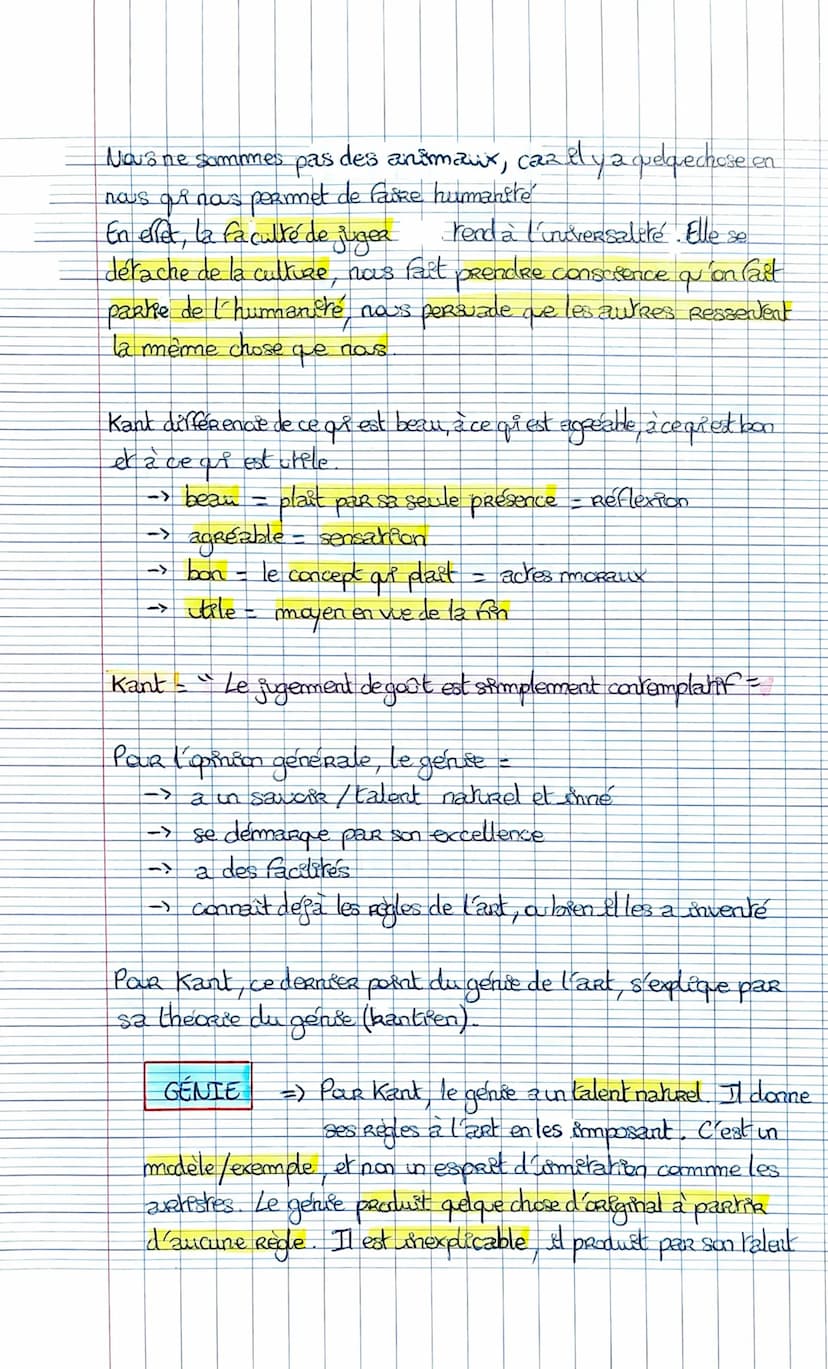 Nous ne sommes pas des animaux, car il y a quelque chose en
nous qui nous permet de faire humanité
En effet, la faculté de juger tend à l'universalité. Elle se
détache de la culture, nous fait prendre conscience qu'on fait
partie de l'humanité, nous persuade que les autres ressentent
la même chose que nous.
Kant différencie de ce qui est beau, à ce qui est agréable, à ce qui est bon
et à ce qui est utile.
-> beau = plaît par sa seule présence = réflexion
-> agréable = sensation
-> bon = le concept qui plaît = actes moraux
-> utile = moyen en vue de la fin
Kant = " Le jugement de goût est simplement contemplatif =
Pour l'opinion générale, le génie =
-> a un savoir / talent naturel et inné
-> se démarque par son excellence
-> a des facilités
-> connaît déjà les règles de l'art, ou bien il les a inventé
Pour Kant, ce dernier point du génie de l'art, s'explique par
sa théorie du génie (kantien).
GÉNIE => Pour Kant, le génie a un talent naturel. Il donne
ses règles à l'art en les imposant. C'est un
modèle/exemple, et non un esprit d'imitation comme les
artistes. Le génie produit quelque chose d'original à partir
d'aucune règle. Il est inexplicable, il produit par son talent